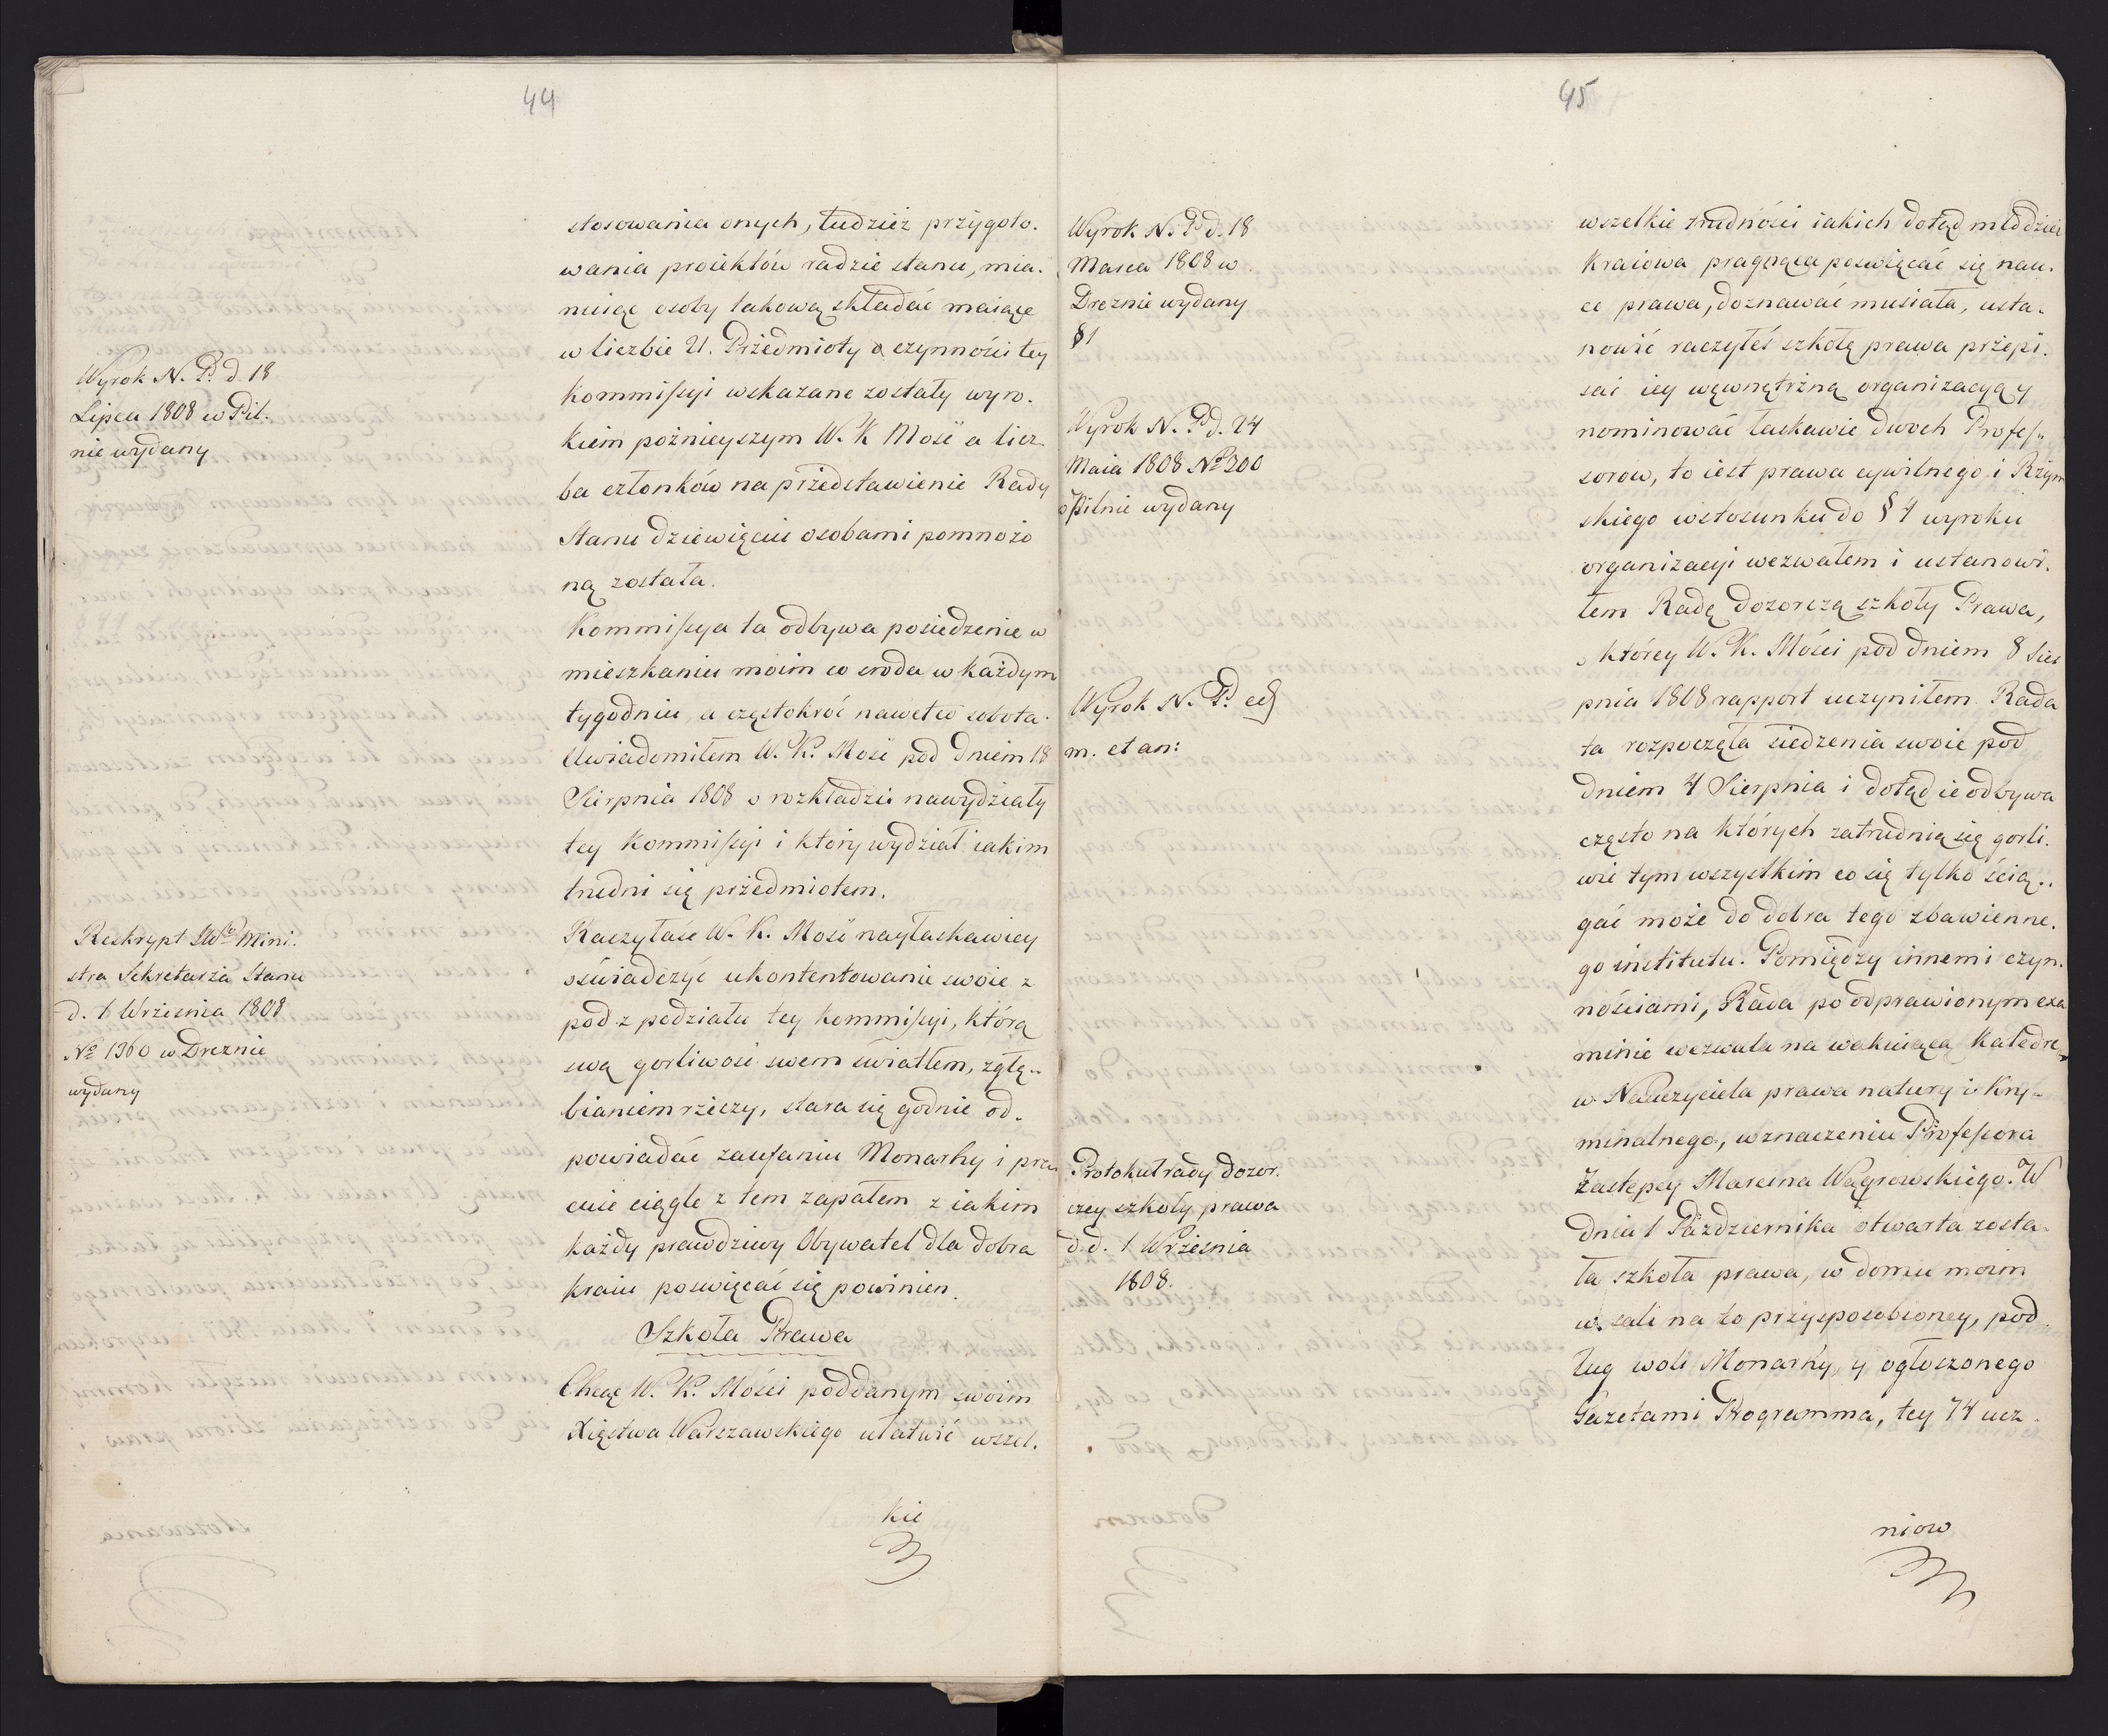 44
Wyrok N. P. d. 18
Lipca 1808 w Pil.
nie wydany
Reskrypt JW Mini.
stra Sekretarza Stanu
d. 1 Wrzesnia 1808
No 1360 w Dreznie
wydany
stosowania onych, tudzież przygoto.
wania proiektów radzie stanu, mia.
nuiąc osoby takową składać maiące
w liczbie 21. Przedmioty a czynności tey
Kommissyi wskazane zostały wyro.
kiem pożnieyszym W. K Mość a licz.
ba członków na przedstawienie Rady
Stanu dziewięciu osobami pomnożo
ną została.
Kommissya ta odbywa posiedzenie w
mieszkaniu moim co sroda w każdym
tygodniu, a częstokroć nawet co sobota.
Uwiadomiłem W. K. Mość pod dniem 18
Sierpnia 1808 o rozkładzie na wydziały
tey Kommissyi i który wydział iakim
trudni się przedmiotem.
Raczyłaś W. K. Mość nayłaskawiey
oświadczyć ukontentowanie swoie z
pod z podziału tey Kommissyi, która
swą gorliwość swem światłem, zgłę..
bianiem rzeczy, stara się godnie od.
powiadać zaufaniu Monarhy i pra
cuie ciągle z tem zapałem z iakim
każdy prawdziwy Obywatel dla dobra
kraiu poswięcać się powinien.
Szkoła Prawa
Chcąc W. K. Mości poddanym swoim
Xięstwa Warszawskiego ułatwić wszel.
kie
45
Wyrok N. P. d. 18
Marca 1808 w
Dreznie wydany
§ 1
Wyrok N. P. d. 24
Maia 1808 No 200
Pilnie wydany
Wyrok N. P. eod
m. et an:
Protokuł rady dozor.
czey szkoły prawa
d. d. 1 Wrzesnia
1808.
wszelkie trudności iakich dotąd młodzież
kraiowa pragnąca poswięcać się nau.
ce prawa, doznawać musiała, usta.
nowić raczyłeś szkołę prawa przepi.
sać iey wewnętrzną organizacyą y
nominować łaskawie dwoch Profes..
sorow, to iest prawa cywilnego i Rzym
skiego w stosunku do § 4 wyroku
organizacyi wezwałem i ustanowi.
łem Radę dozorczą szkoły Prawa,
o którey W. K. Mości pod dniem 8 Sier
pnia 1808 rapport uczyniłem. Rada
ta rozpoczęła siedzenia swoie pod
dniem 4 Sierpnia i dotąd ie odbywa
często na których zatrudnia się gorli.
wie tym wszystkim co się tylko ścią..
gać może do dobra tego zbawienne.
go institutu. Pomiędzy innemi czyn.
nościami, Rada po odprawionym exa
minie wezwała na wakuiącą Katedre
w Nauczyciela prawa natury i Kry.
minalnego, w znaczeniu Professora
Zastępcy Marcina Wągrowskiego. W
dniu 1 Pazdziernika otwarta zosta.
ła szkoła prawa, w domu moim
w sali na to przysposobioney, pod.
ług woli Monarhy, y ogłoszonego
Gazetami Programma, tey 74 ucz.
niow